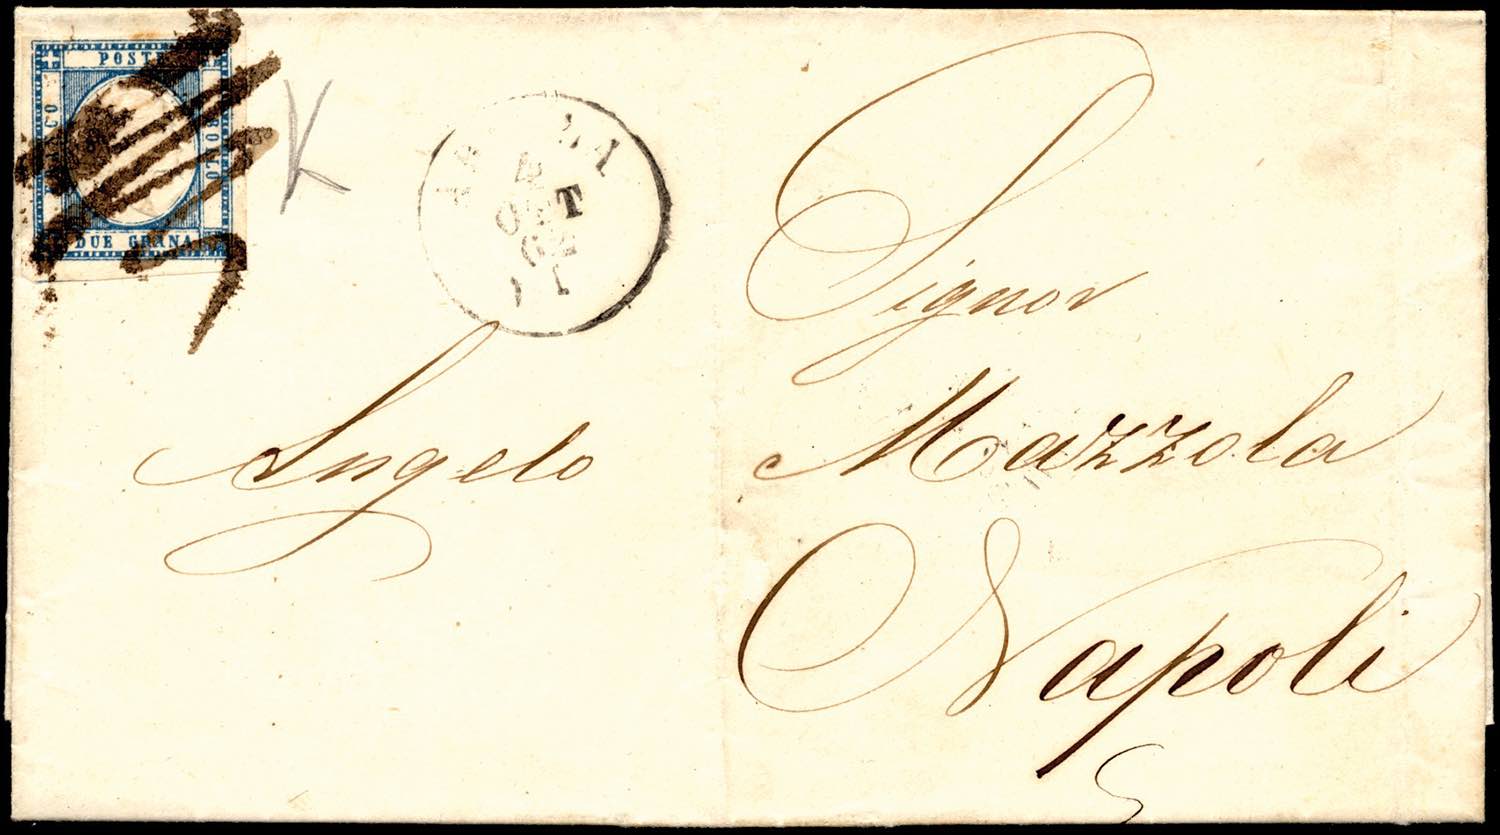 POSTE
FRANCO
BOLLO
DUE GRANA
K
4
OTT
62
Signor
Angelo Mazzola
Napoli